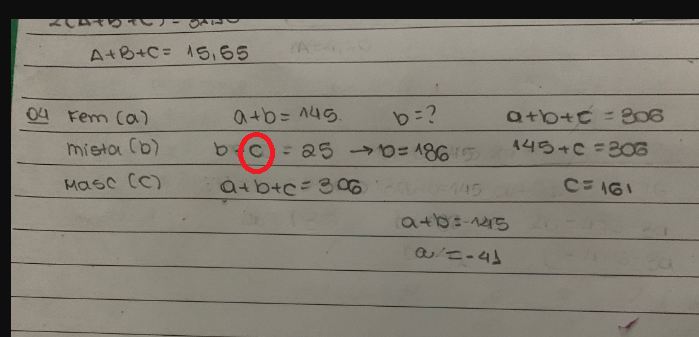 A+B+C = 15,55
04 Fem (a) a+b = 145 b = ? a+b+c = 306
mista (b) b - c = 25 → b = 186 145 + c = 306
Masc (c) a+b+c = 306 c = 161
a+b = 145
a = -41